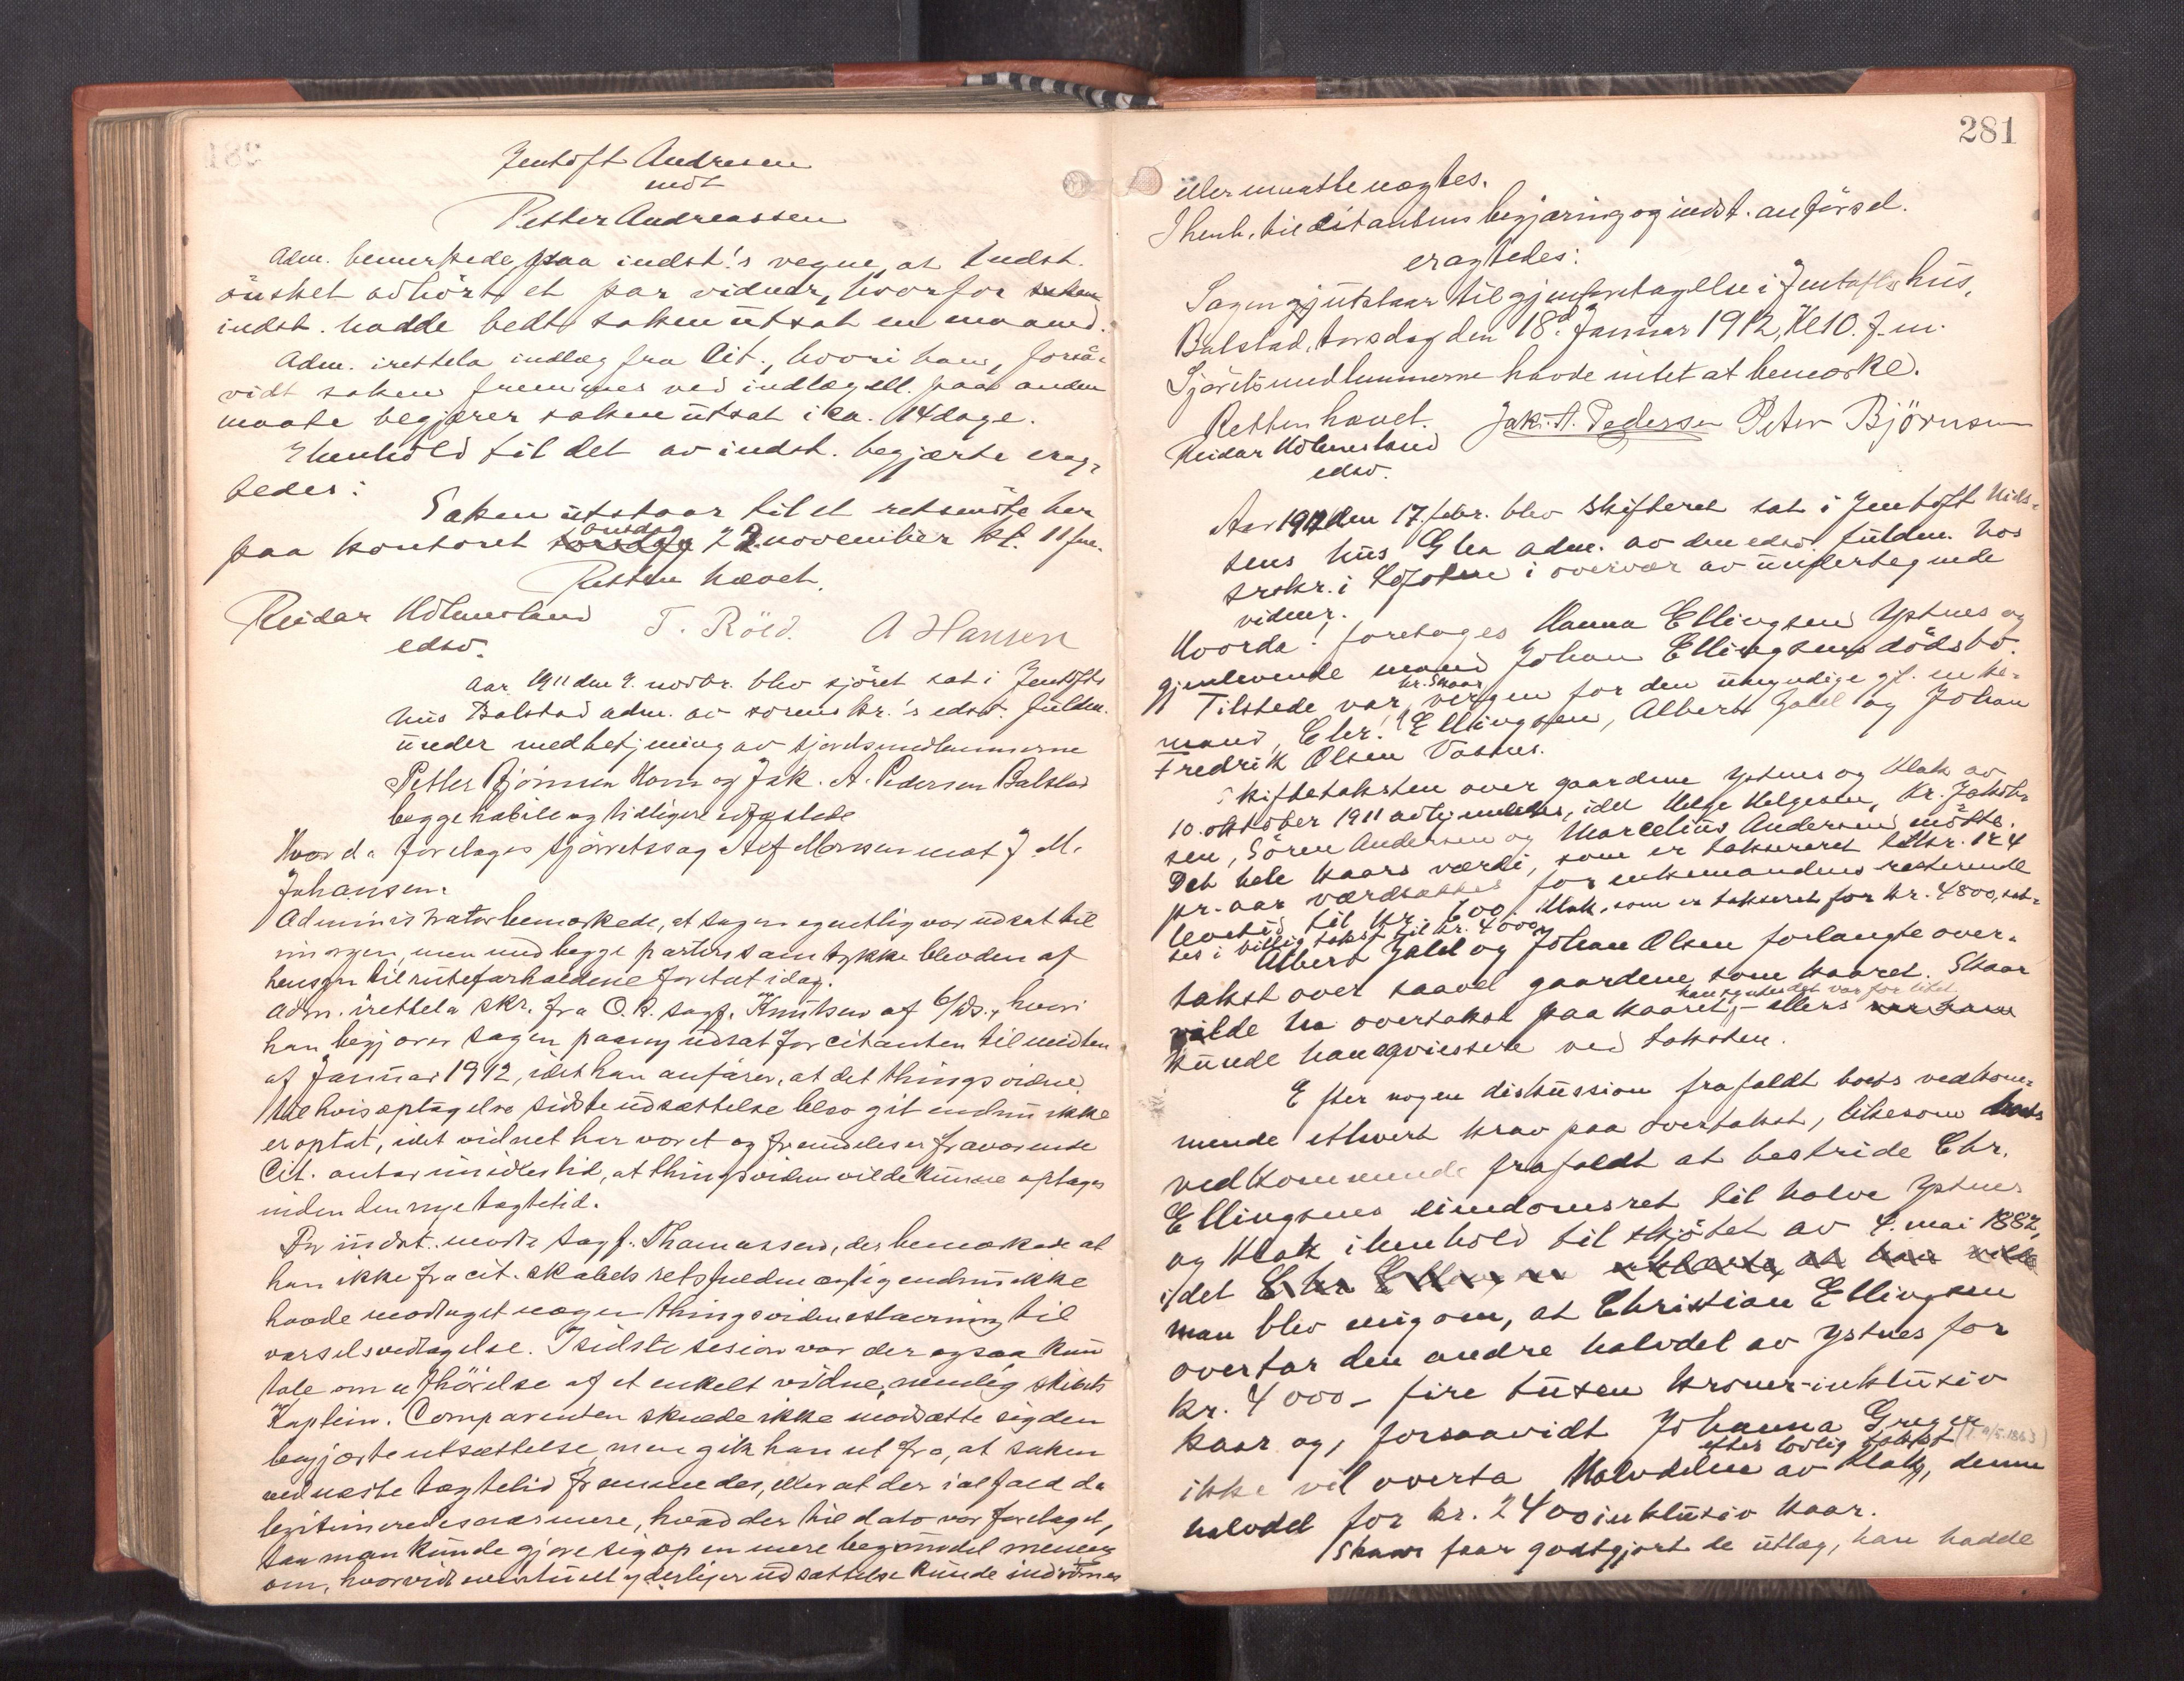 Jentoft Andresen
mot
Petter Andreassen
Adm. bemerkede paa indst.'s vegne, at Indst.
önsket avhört et par vidner, hvorfor saken
indst. hadde bedt saken utsat en maaned.
Adm. irettela indlæg fra Cit., hvori han, forsaa-
vidt saken fremmes ved indlæg ell. paa anden
maate begjærer saken utsat i ca. 14 dage.
I henhold til det av indst. begjærte erag-
tedes:
Saken utstaar til et retsmöte her
onsdag
paa kontoret torsdag 22. november kl. 11 fm.
Retten hævet.
Reidar Holmesland T. Röld. A Hansen
edsv.
Aar 1911 den 9. novbr. blev sjöret sat i Jentofts
hus Balstad adm. av sorenskr.'s edsv. fuldm.
under medbetjening av sjöretsmedlemmerne
Petter Björnsen Horn og Jak. A. Pedersen Balstad
begge habile og tidligere edfæstede
Hvorda foretages sjöretssag Alf Monsen mot J. M.
Johansen.
Administrator bemærkede, at sagen egentlig var udsat til
imorgen, men med begge parters samtykke blev den af
hensyn til ruteforholdene foretat idag.
Adm. irettela skr. fra O.R. sagf. Knutsen af 6/ds., hvori
han begjærer sagen paany udsat for citanten til midten
af Januar 1912, idet han anförer, at det thingsvidne
til hvis optagelse sidste udsættelse blev git endnu ikke
er optat, idet vidnet har været og fremdeles er fraværende
Cit. antar imidlertid, at thingsvidnet vilde kunne optages
inden den nye tægtetid.
For indst. mödte sagf. Thomassen, der bemærkede at
han ikke fra cit. skabels retsfuldmægtig endnu ikke
havde modtaget nogen thingsvidnestævning til
varselsvedtagelse. I sidste session var der ogsaa kun
tale om afhörelse af et enkelt vidne, nemlig skibets
Kaptein. Comparenten skulde ikke modsætte sig den
begjærte utsættelse, men gik han ut fra, at saken
ved næste tægtetid fremmedes, eller at der i alfald da
legitimeredes nærmere, hvad der til dato var foretaget,
saa man kunde gjøre sig op en mere begrundet mening
om, hvorvidt eventuelt yderligere udsættelse kunde indrömes
281
eller maatte nægtes.
I henh. til citantens begjæring og indst. anförsel.
eragtedes:
Sagen utstaar til gjenforetagelse i Jentofts hus,
Balstad, torsdag den 18de Januar 1912, Kl 10. f.m.
Sjöretsmedlemmerne havde intet at bemærke.
Retten hævet. Jak. A. Pedersen Peter Björnsen
Reidar Holmesland
edsv.
Aar 1912 den 17. febr. blev skifteret sat i Jentoft Nils-
sens hus adm. av den edsv. fuldm. hos
srskr. i Lofoten i overvær av undertegnede
vidner.
Hvorda! foretages Hanna Ellingsens Ystnes og
gjenlevende mand Johan Ellingsens dödsbo.
hr. Skaar
Tilstede var, vergen for den umyndige gl. enke-
mand, Chr. Ellingsen, Albert Jald og Johan
Fredrik Olsen Vassnes.
Skiftetaksten over gaardene Ystnes og Klak av
10. oktober 1911 avhjemledes, idet Helge Helgesen, Kr. Jakob-
sen, Sören Andersen og Marcelius Andersen mötte.
Det hele kaars værdi, som er takseret til kr. 124
pr. aar værdsættes for enkemandens resterende
levetid til kr. 600. Klak, som er takseret for kr. 4800, sæt-
tes i billig takst til kr. 4000,
Albert Jald og Johan Olsen forlangte over-
takst over saavel gaardene som kaaret. Skaar
han syntes det var for litet
vilde ha overtakst paa kaaret, – ellers var han
kunde han aqviescere ved taksten.
Efter nogen diskussion frafaldt boets vedkom-
mende ethvert krav paa overtakst, likesom boets
vedkommende frafaldt at bestride Chr.
Ellingsens eiendomsret til halve Ystnes
og Klak i henhold til skjötet av 4. mai 1882,
idet Chr Ellingsen erklærte, at han vilde
man blev enig om, at Christian Ellingsen
overtar den andre halvdel av Ystnes for
kr. 4000 – fire tusen kroner – inklusiv
kaar og, forsaavidt Johanna Greger (f. 9/5.1863)
efter lovlig takst
ikke vil overta Halvdelen av Klak, denne
halvdel for kr. 2400 inklusiv kaar.
Skaar faar godtgjort de utlæg, han hadde